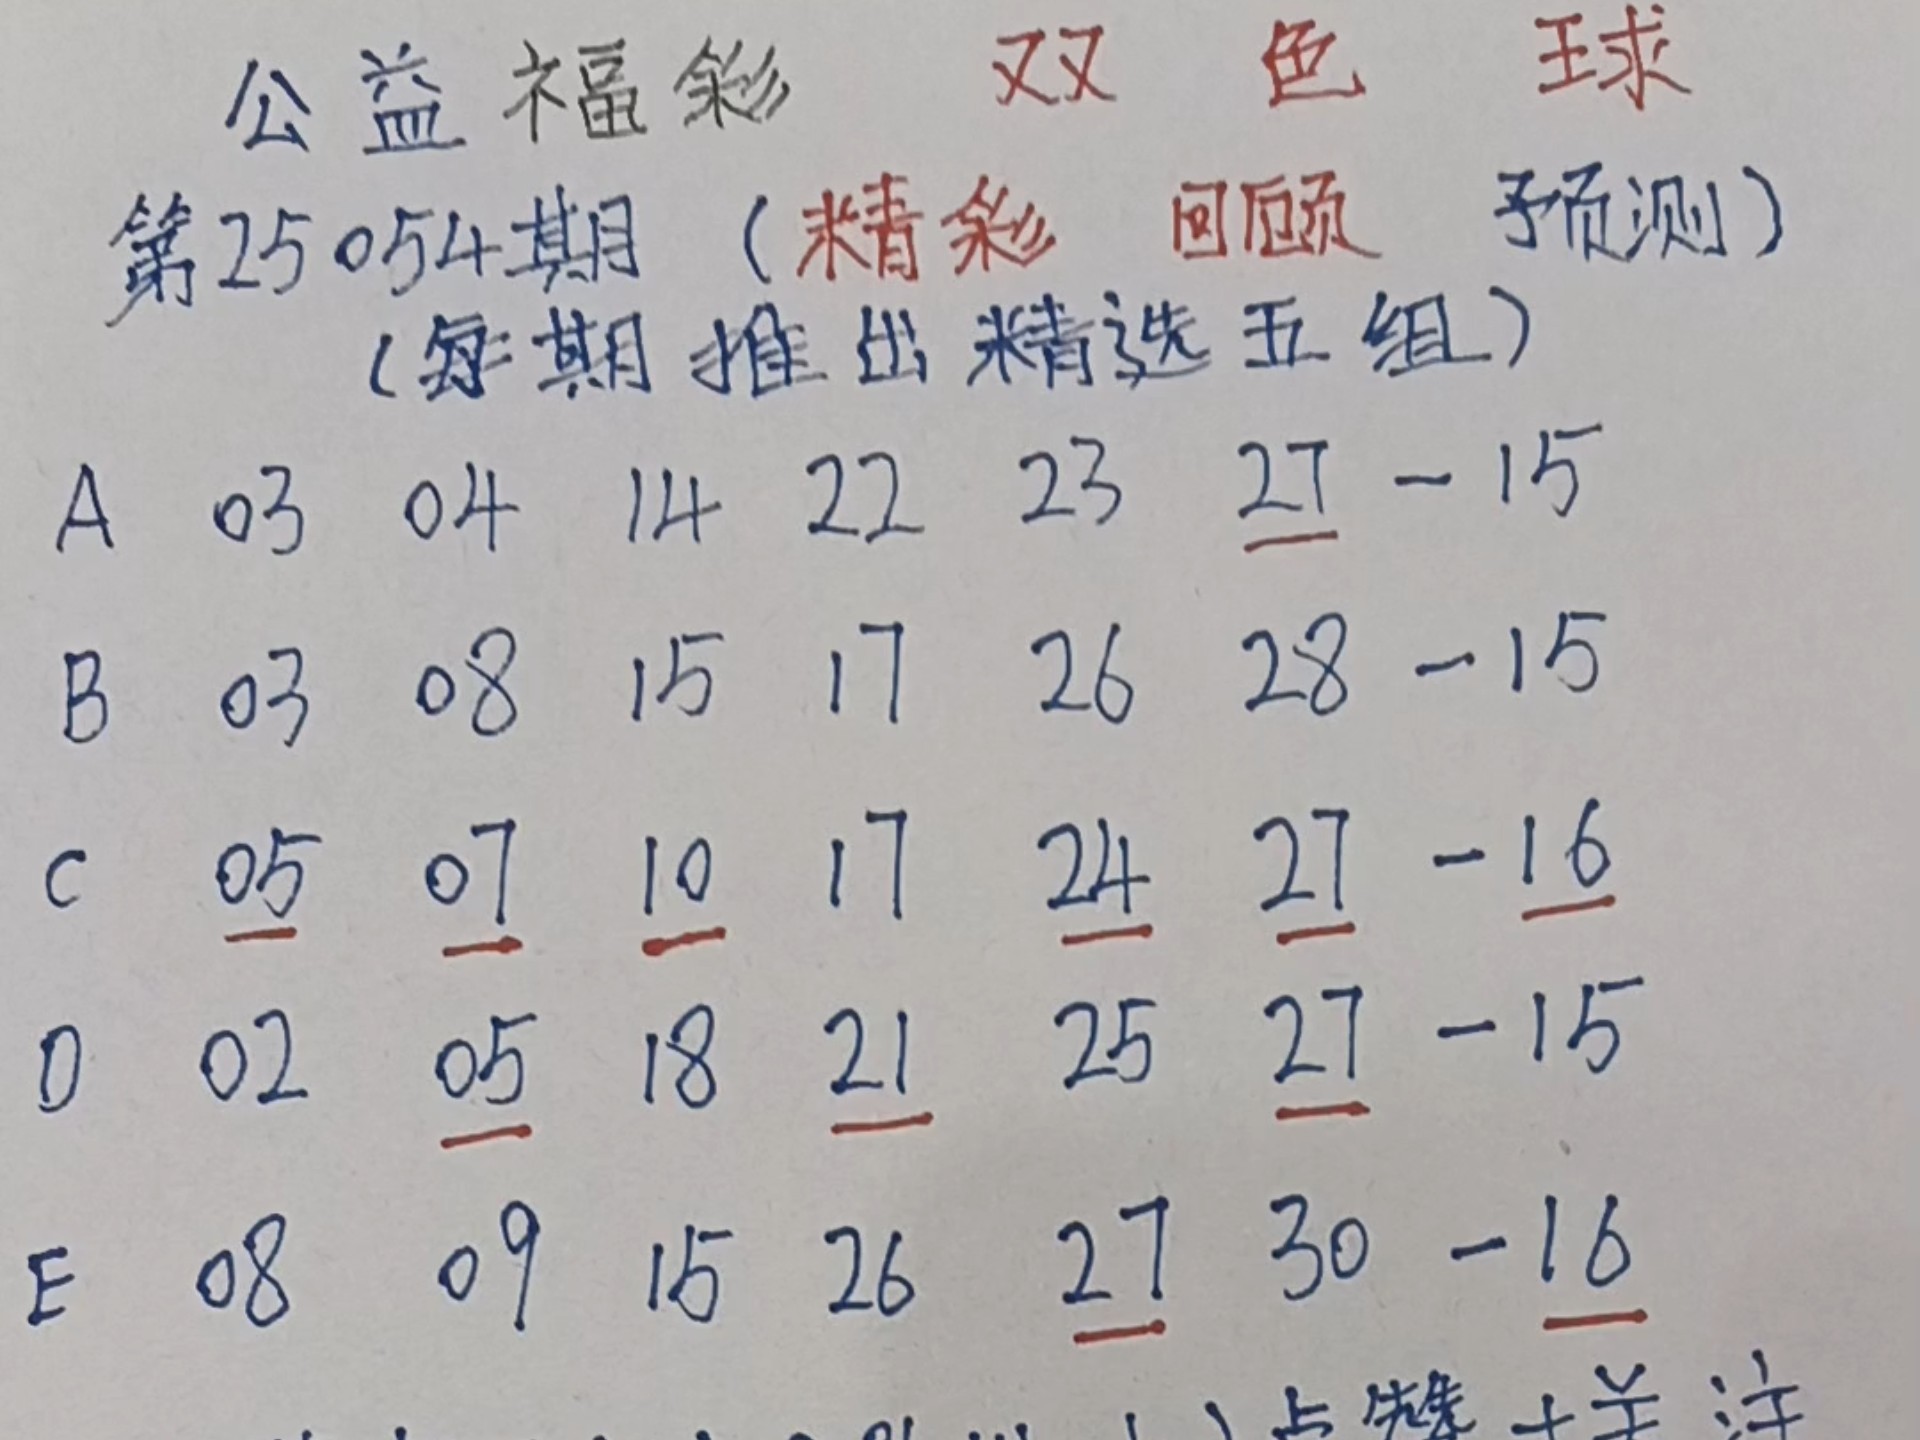 公益福彩 双色球
第25054期（精彩回顾 予预测）
（每期推出精选五组）
A 03 04 14 22 23 27 - 15
B 03 08 15 17 26 28 - 15
C 05 07 10 17 24 27 - 16
D 02 05 18 21 25 27 - 15
E 08 09 15 26 27 30 - 16
点赞+关注